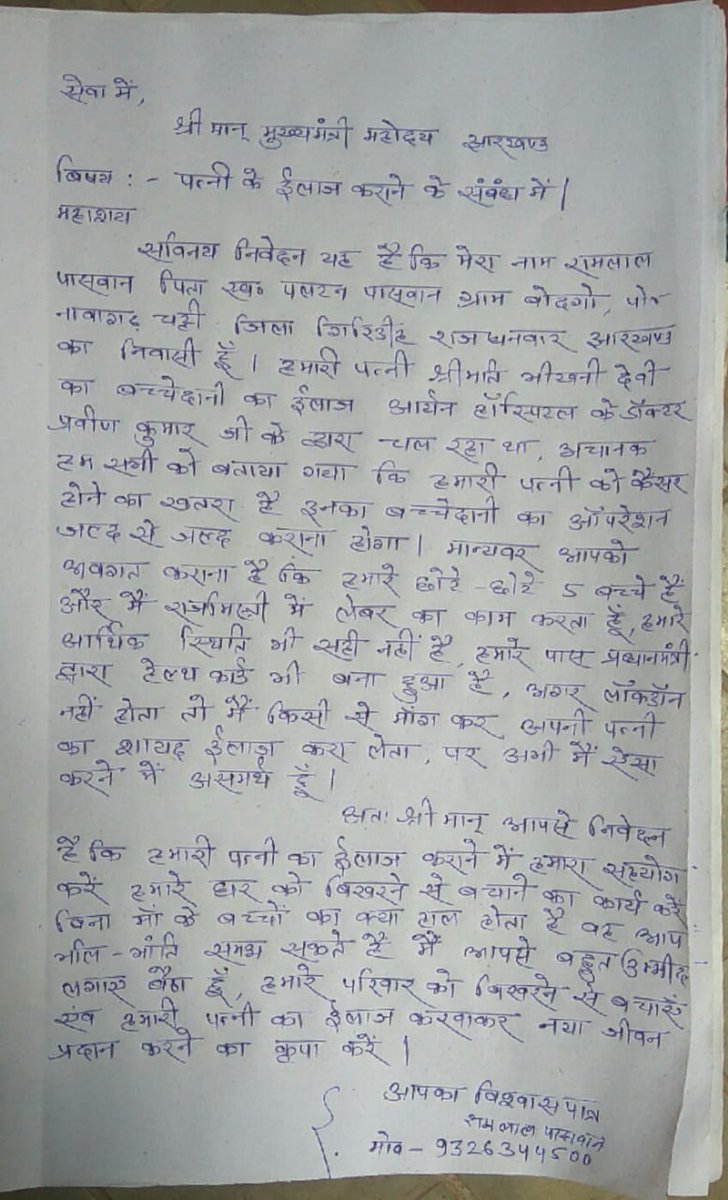 सेवा में,
श्रीमान् मुख्यमंत्री महोदय झारखण्ड
बिषय : - पत्नी के ईलाज कराने के संबंध में |
महाशय
सविनय निवेदन यह है कि मेरा नाम रामलाल
पासवान पिता स्व० पलटन पासवान ग्राम बोदगो, पो०
नावागढ़ चट्टी जिला गिरिडीह राजधनवार झारखण्ड
का निवासी हूँ | हमारी पत्नी श्रीमति भीखनी देवी
का बच्चेदानी का ईलाज आर्यन हॉस्पिटल के डॉक्टर
प्रवीण कुमार जी के द्वारा चल रहा था, अचानक
हम सभी को बताया गया कि हमारी पत्नी को कैंसर
होने का खतरा है इनका बच्चेदानी का ऑपरेशन
जल्द से जल्द कराना होगा | मान्यवर आपको
अवगत कराना है कि हमारे छोटे-छोटे 5 बच्चे हैं
और मैं राजमिस्त्री में लेबर का काम करता हूँ, हमारे
आर्थिक स्थिति भी सही नहीं है, हमारे पास प्रधानमंत्री
द्वारा हेल्थ कार्ड भी बना हुआ है, अगर लॉकडॉन
नहीं होता तो मैं किसी से माँग कर अपनी पत्नी
का शायद ईलाज करा लेता, पर अभी मैं ऐसा
करने में असमर्थ हूँ |
अतः श्रीमान् आपसे निवेदन
है कि हमारी पत्नी का ईलाज कराने में हमारा सहयोग
करें हमारे घर को बिखरने से बचाने का कार्य करें
बिना माँ के बच्चों का क्या हाल होता है वह आप
भलि-भांति समझ सकते हैं मैं आपसे बहुत उम्मीद
लगाए बैठा हूँ, हमारे परिवार को बिखरने से बचाएँ
एंव हमारी पत्नी का ईलाज करवाकर नया जीवन
प्रदान करने का कृपा करें |
आपका विश्वासपात्र
रामलाल पासवान
मोब - 9326344500